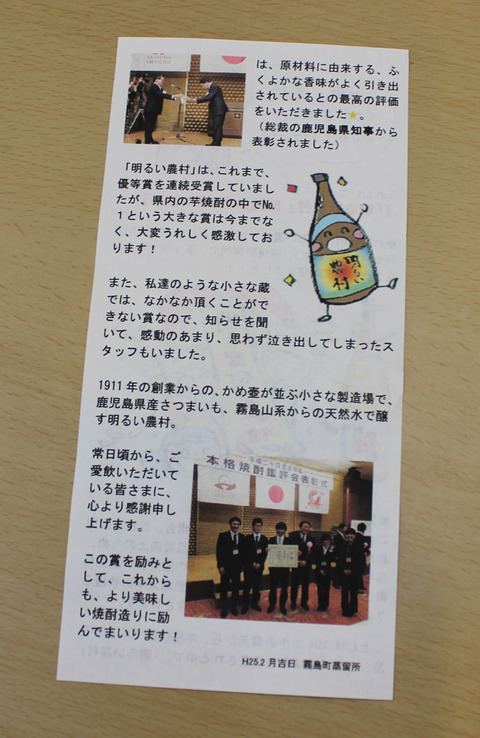 は、原材料に由来する、ふ
くよかな香味がよく引き出
されているとの最高の評価
をいただきました★。
（総裁の鹿児島県知事から
表彰されました）
「明るい農村」は、これまで、
優等賞を連続受賞していまし
たが、県内の芋焼酎の中でNo.
１という大きな賞は今までな
く、大変うれしく感激してお
ります！
明るい
農村
また、私達のような小さな蔵
では、なかなか頂くことがで
きない賞なので、知らせを聞
いて、感動のあまり、思わず泣き出してしまったス
タッフもいました。
1911 年の創業からの、かめ壺が並ぶ小さな製造場で、
鹿児島県産さつまいも、霧島山系からの天然水で醸
す明るい農村。
常日頃から、ご
愛飲いただいて
いる皆さまに、
心より感謝申し
上げます。
この賞を励みと
して、これから
も、より美味し
い焼酎造りに励
んでまいります！
本格焼酎鑑評会表彰式
H25.2 月吉日　霧島町蒸留所